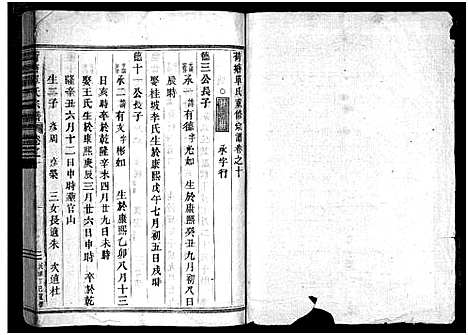 荷塘單氏重修宗譜卷之十
承字行
德三公長子
承一 有德 允如 生於康熙癸丑九月初八日
辰時
娶桂坡李氏生於康熙戊午七月初五日戌時
德十一公長子
承二 有支 彬如 生於康熙乙卯八月十三
日亥時卒於乾隆辛未四月廿九日未時
娶王氏生於康熙庚辰三月廿六日申時 卒於乾
隆辛丑六月十二日申時葬官山
生二子 彥周 彥榮 三女長適朱 次適杜